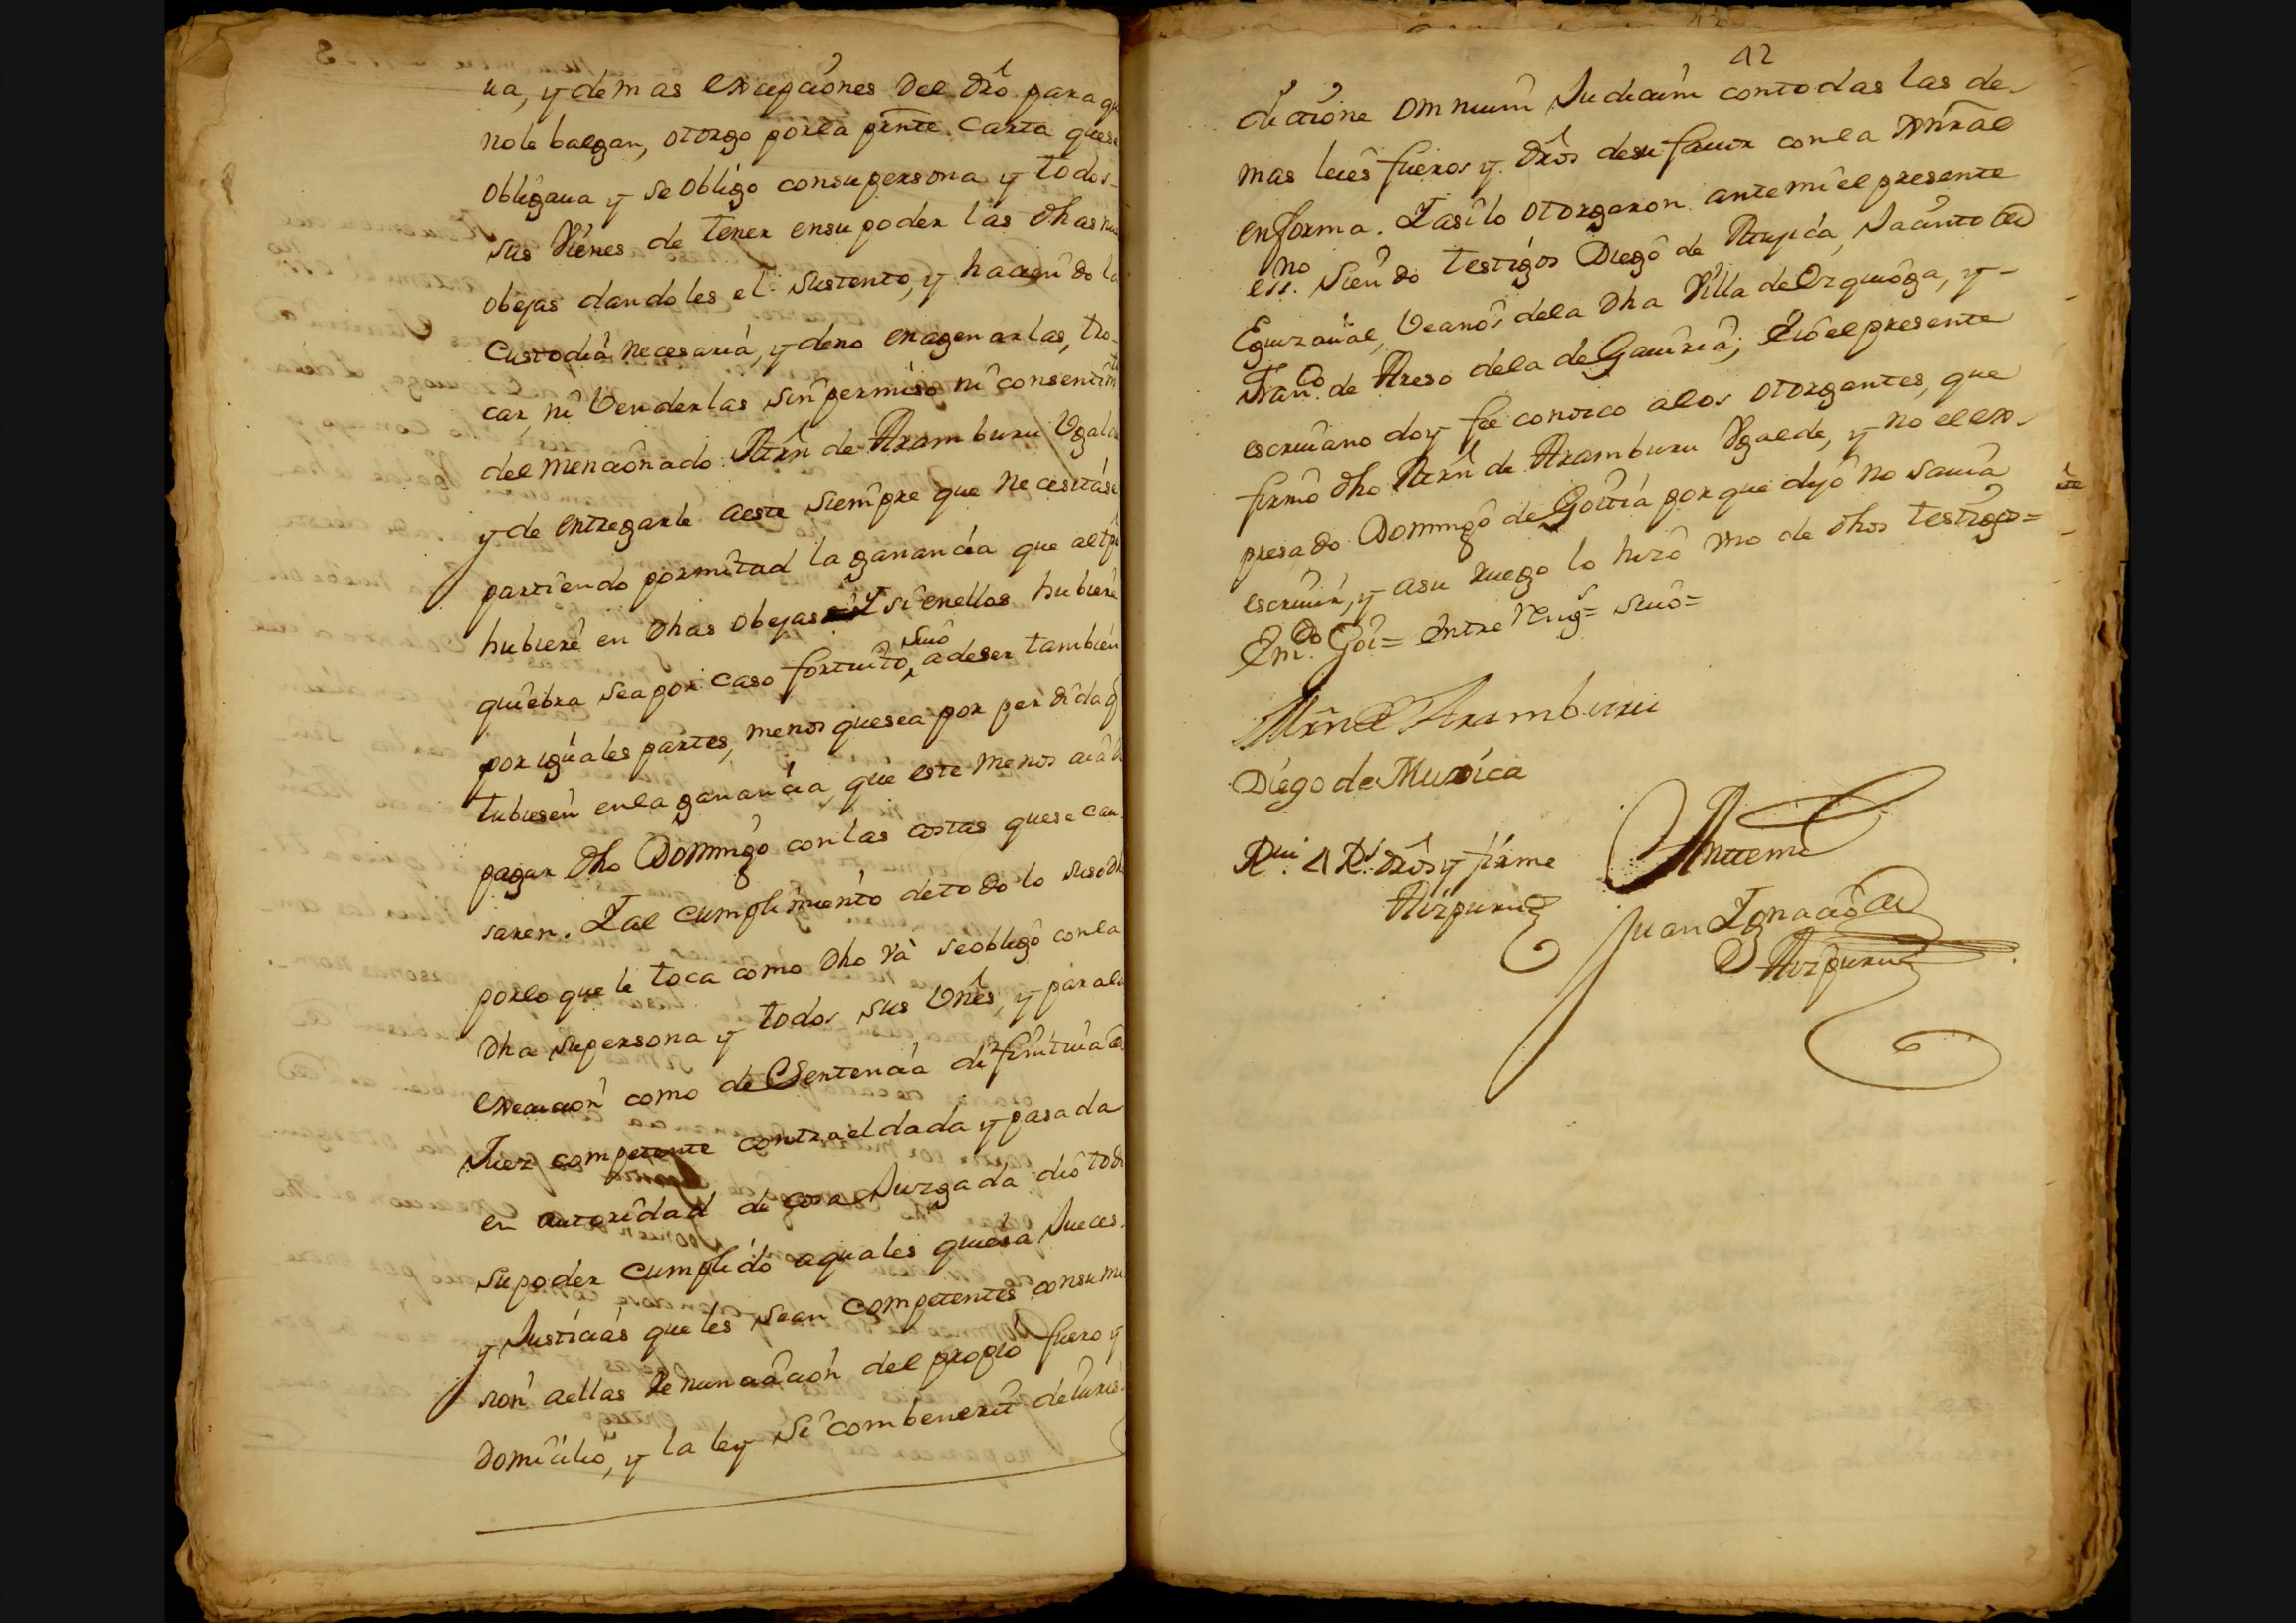 ua, y demas excepciones del dro para q
no le balgan, otorgo por la prnte. Carta que se
obligaua y se obligo con su persona y todos
sus Vienes de tener en su poder las dhas nu
obejas dandoles el sustento, y haciendo la
Custodia necesaria, y de no enagenarlas, tro-
car, ni Venderlas sin permiso ni consentim
del mencionado Mrn de Aramburu Vgalde
y de entregarle a este siempre que necesitase
partiendo por mitad la ganancia que al tpo
hubiere en dhas obejas Y si en ellas hubiere
quiebra sea por caso fortuito, a de ser tambien
sino
por iguales partes, menos que sea por perdida q
tubiesen en la ganancia, que este menos aia de
pagar dho Domingo con las costas que se cau-
saren. Y al cumplimiento de todo lo susodho
por lo que le toca como dho Va se obligo con la
dha su persona y todos sus Vnes, y para la
execucion como de Sentencia difinitiua de
Juez competente contra el dada y pasada
en autoridad de cosa Juzgada dio todo
su poder cumplido a quales quiera Jueces
y Justicias que les sean competentes con sumi
sion a ellas Renunciacion del propio fuero y
Domicilio, y la ley Si combenerit de Juris-
42
dictione omnium Judicum con todas las de-
mas leies fueros y dros de su fauor con la Gnral
en forma. Y asi lo otorgaron ante mi el presente
essno. Siendo testigos Diego de Muxica, Jacinto de
Eguzaual, Vecinos de la dha Villa de Ezquioga, y -
Franco. de Areso de la de Gauiria; E io el presente
escriuano doy fee conozco a los otorgantes, que
firmo dho Mrn de Aramburu Vgalde, y no el ex-
presado Domingo de Goitia porque dijo no sauia
escriuir, y a su ruego lo hizo vno de dhos testigos=
Emdo. Goi= Entre Rengs= sino=
Mrn de Aramburu
Diego de Muxica
Rui. 4 Rs. dros y firme
Aizpuru
Ante mi
Juan Ignacio de
Aizpuru